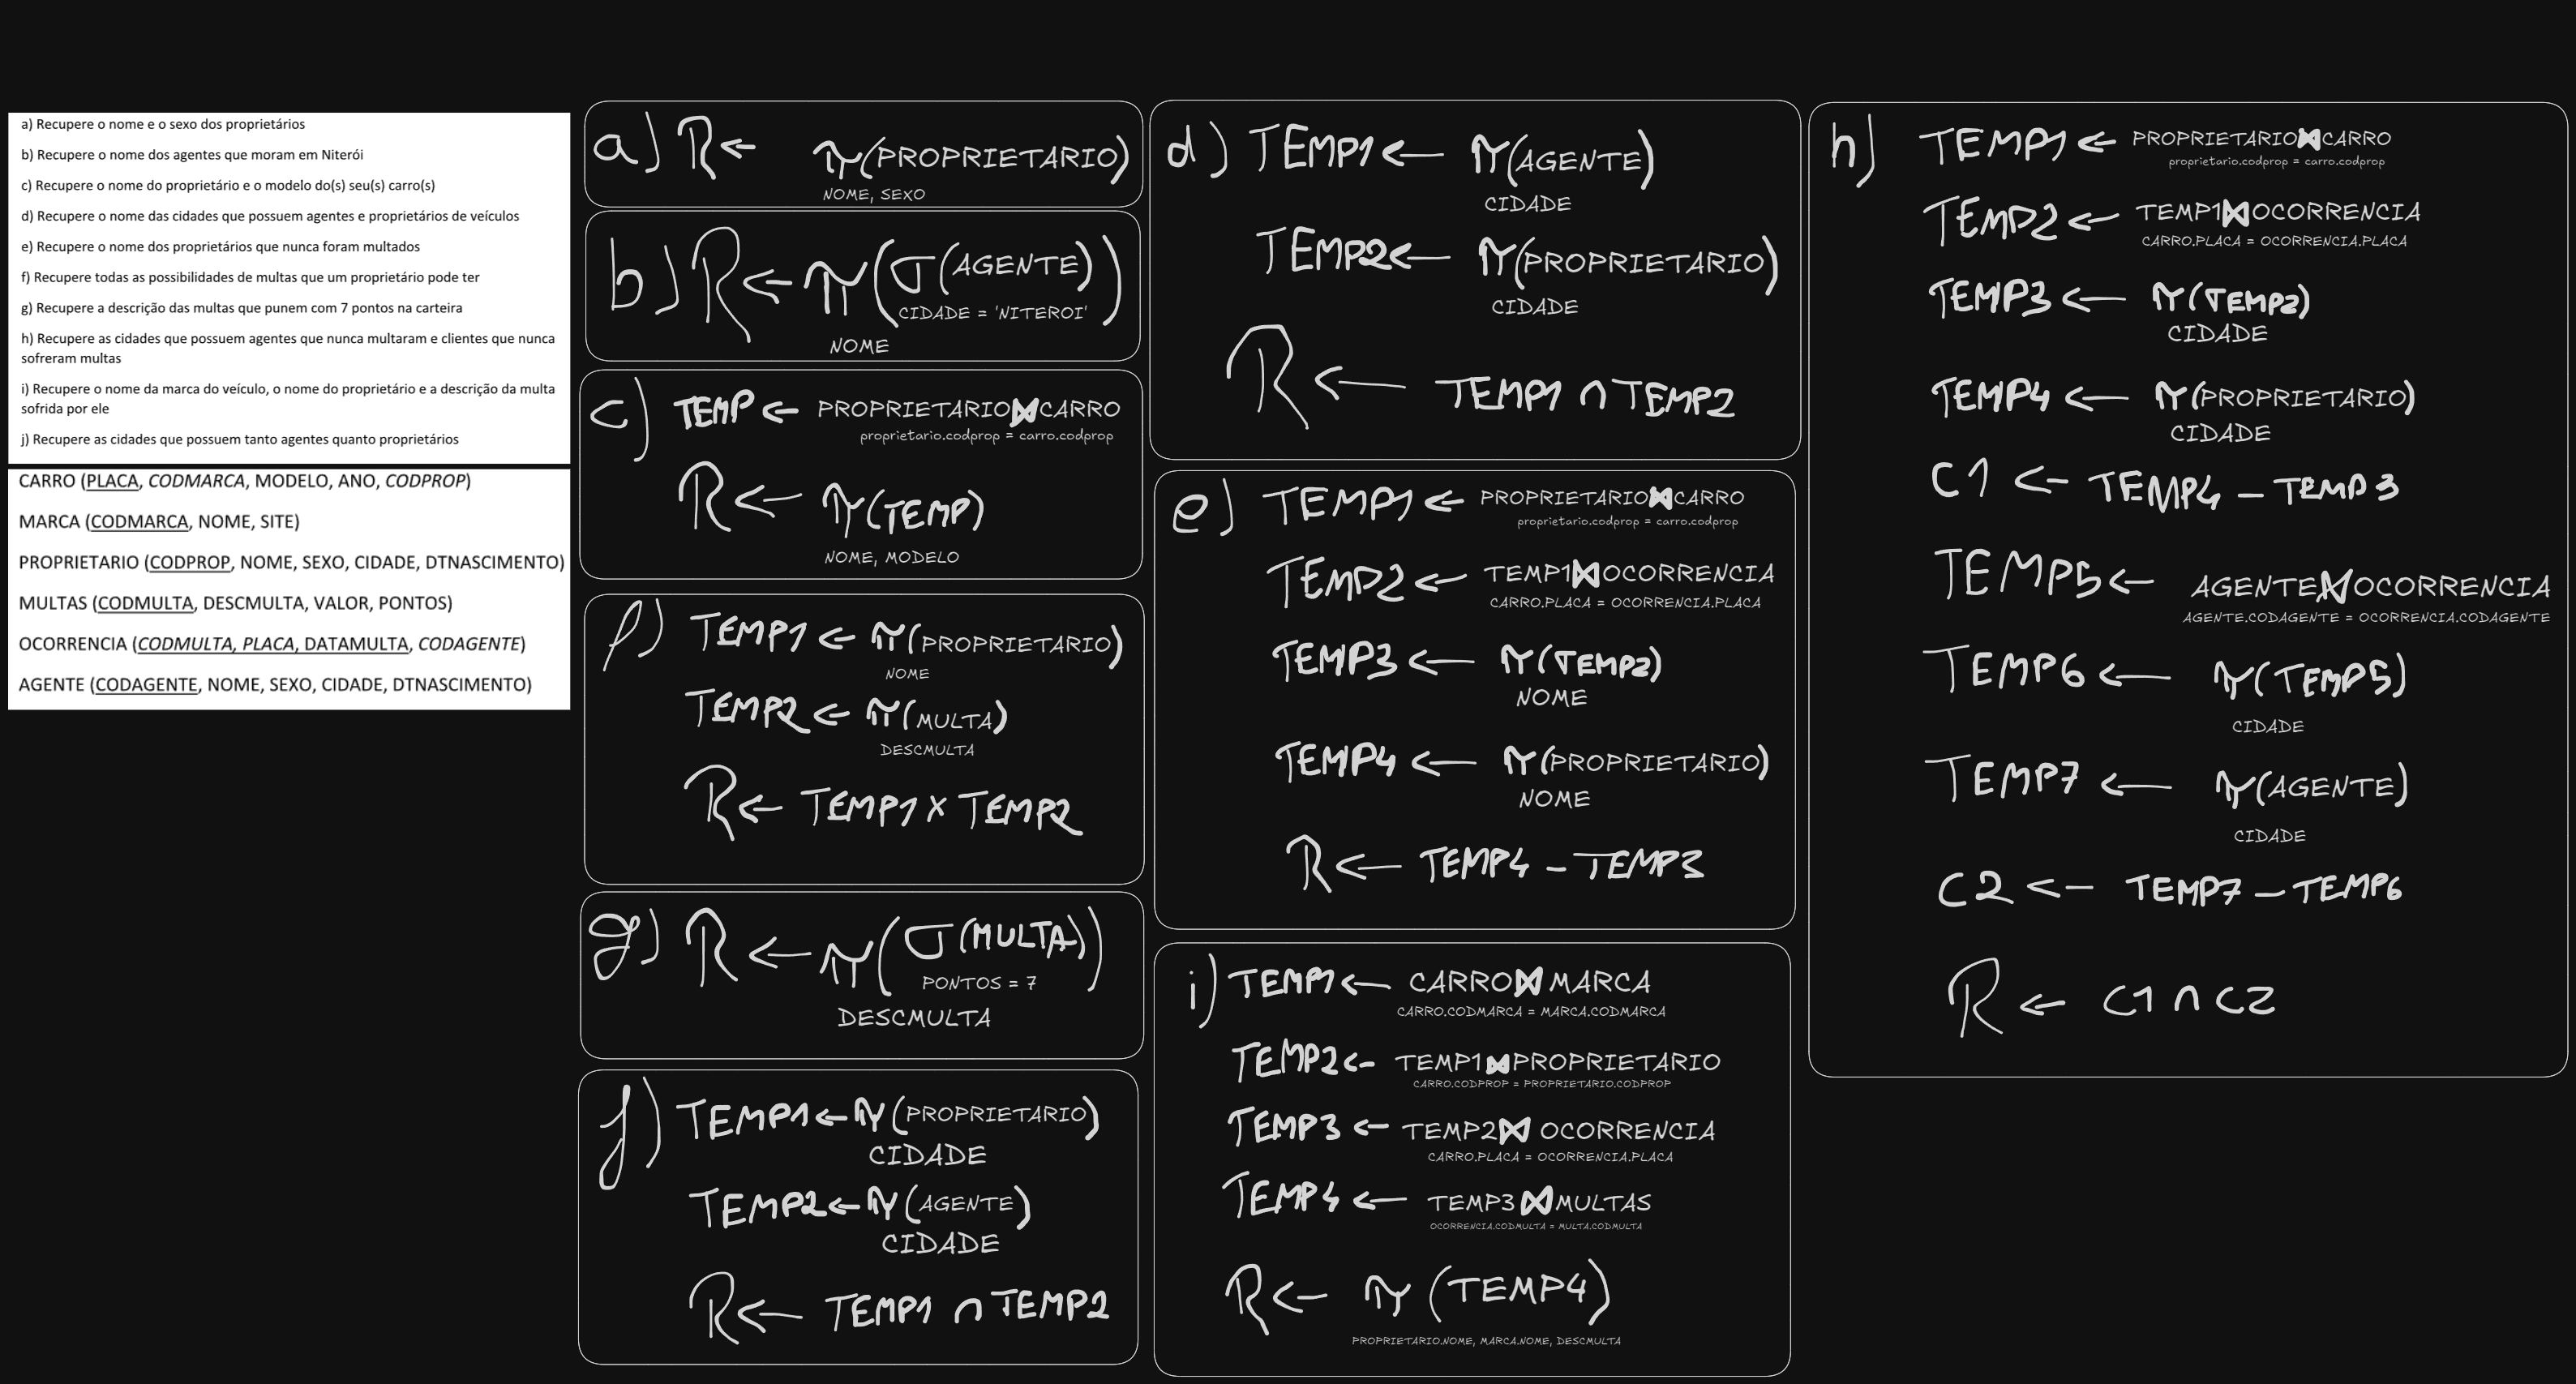 a) Recupere o nome e o sexo dos proprietários
b) Recupere o nome dos agentes que moram em Niterói
c) Recupere o nome do proprietário e o modelo do(s) seu(s) carro(s)
d) Recupere o nome das cidades que possuem agentes e proprietários de veículos
e) Recupere o nome dos proprietários que nunca foram multados
f) Recupere todas as possibilidades de multas que um proprietário pode ter
g) Recupere a descrição das multas que punem com 7 pontos na carteira
h) Recupere as cidades que possuem agentes que nunca multaram e clientes que nunca
sofreram multas
i) Recupere o nome da marca do veículo, o nome do proprietário e a descrição da multa
sofrida por ele
j) Recupere as cidades que possuem tanto agentes quanto proprietários
CARRO (PLACA, CODMARCA, MODELO, ANO, CODPROP)
MARCA (CODMARCA, NOME, SITE)
PROPRIETARIO (CODPROP, NOME, SEXO, CIDADE, DTNASCIMENTO)
MULTAS (CODMULTA, DESCMULTA, VALOR, PONTOS)
OCORRENCIA (CODMULTA, PLACA, DATAMULTA, CODAGENTE)
AGENTE (CODAGENTE, NOME, SEXO, CIDADE, DTNASCIMENTO)
a) R ← π(PROPRIETARIO)
NOME, SEXO
b) R ← π(σ(AGENTE))
CIDADE = 'NITEROI'
NOME
c) TEMP ← PROPRIETARIO⋈CARRO
proprietario.codprop = carro.codprop
R ← π(TEMP)
NOME, MODELO
f) TEMP1 ← π(PROPRIETARIO)
NOME
TEMP2 ← π(MULTA)
DESCMULTA
R ← TEMP1 X TEMP2
g) R ← π(σ(MULTA))
PONTOS = 7
DESCMULTA
j) TEMP1 ← π(PROPRIETARIO)
CIDADE
TEMP2 ← π(AGENTE)
CIDADE
R ← TEMP1 ∩ TEMP2
d) TEMP1 ← π(AGENTE)
CIDADE
TEMP2 ← π(PROPRIETARIO)
CIDADE
R ← TEMP1 ∩ TEMP2
e) TEMP1 ← PROPRIETARIO⋈CARRO
proprietario.codprop = carro.codprop
TEMP2 ← TEMP1⋈OCORRENCIA
CARRO.PLACA = OCORRENCIA.PLACA
TEMP3 ← π(TEMP2)
NOME
TEMP4 ← π(PROPRIETARIO)
NOME
R ← TEMP4 - TEMP3
i) TEMP1 ← CARRO⋈MARCA
CARRO.CODMARCA = MARCA.CODMARCA
TEMP2 ← TEMP1⋈PROPRIETARIO
CARRO.CODPROP = PROPRIETARIO.CODPROP
TEMP3 ← TEMP2⋈ OCORRENCIA
CARRO.PLACA = OCORRENCIA.PLACA
TEMP4 ← TEMP3⋈MULTAS
OCORRENCIA.CODMULTA = MULTA.CODMULTA
R ← π (TEMP4)
PROPRIETARIO.NOME, MARCA.NOME, DESCMULTA
h) TEMP1 ← PROPRIETARIO⋈CARRO
proprietario.codprop = carro.codprop
TEMP2 ← TEMP1⋈OCORRENCIA
CARRO.PLACA = OCORRENCIA.PLACA
TEMP3 ← π(TEMP2)
CIDADE
TEMP4 ← π(PROPRIETARIO)
CIDADE
C1 ← TEMP4 - TEMP3
TEMP5 ← AGENTE⋈OCORRENCIA
AGENTE.CODAGENTE = OCORRENCIA.CODAGENTE
TEMP6 ← π(TEMP5)
CIDADE
TEMP7 ← π(AGENTE)
CIDADE
C2 ← TEMP7 - TEMP6
R ← C1 ∩ C2